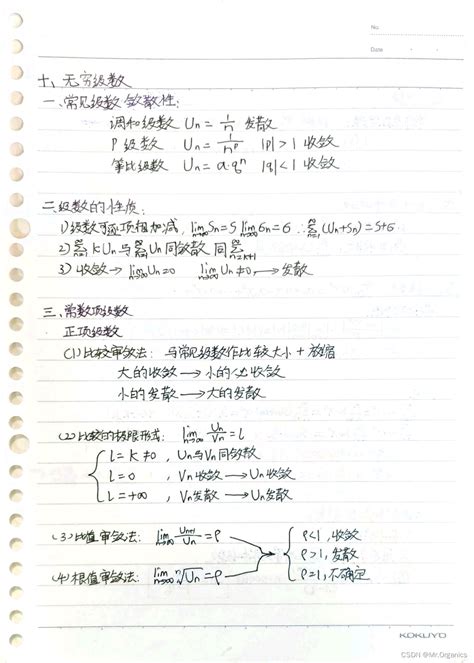 No.
Date
十、无穷级数
一、常见级数敛散性:
调和级数 Un = 1/n 发散
P级数 Un = 1/n^p |p|>1 收敛
等比级数 Un = a·q^n |q|<1 收敛
二、级数的性质:
1)级数可逐项相加减, lim n→∞ Sn=S lim n→∞ Gn=G ∴ ∑ n=1 ∞ (Un+Sn)=S+G
2) ∑ n=1 ∞ kUn 与 ∑ n=1 ∞ Un 同敛散 同 ∑ n=k+1 ∞
3) 收敛→ lim n→∞ Un=0 lim n→∞ Un≠0, → 发散
三、常数项级数
正项级数
(1)比较审敛法: 与常见级数作比较大小 + 放缩
大的收敛 → 小的收敛
小的发散 → 大的发散
(2)比较的极限形式: lim n→∞ Un/Vn = l
{ l = k ≠0, Un与Vn同敛散
l = 0 , Vn收敛 → Un收敛
l = +∞ , Vn发散 → Un发散
(3)比值审敛法: lim n→∞ Un+1/Un = ρ
(4)根值审敛法: lim n→∞ ⁿ√Un = ρ
{ ρ<1, 收敛
ρ>1, 发散
ρ=1, 不确定
KOKUYO
CSDN @Mr.Organics